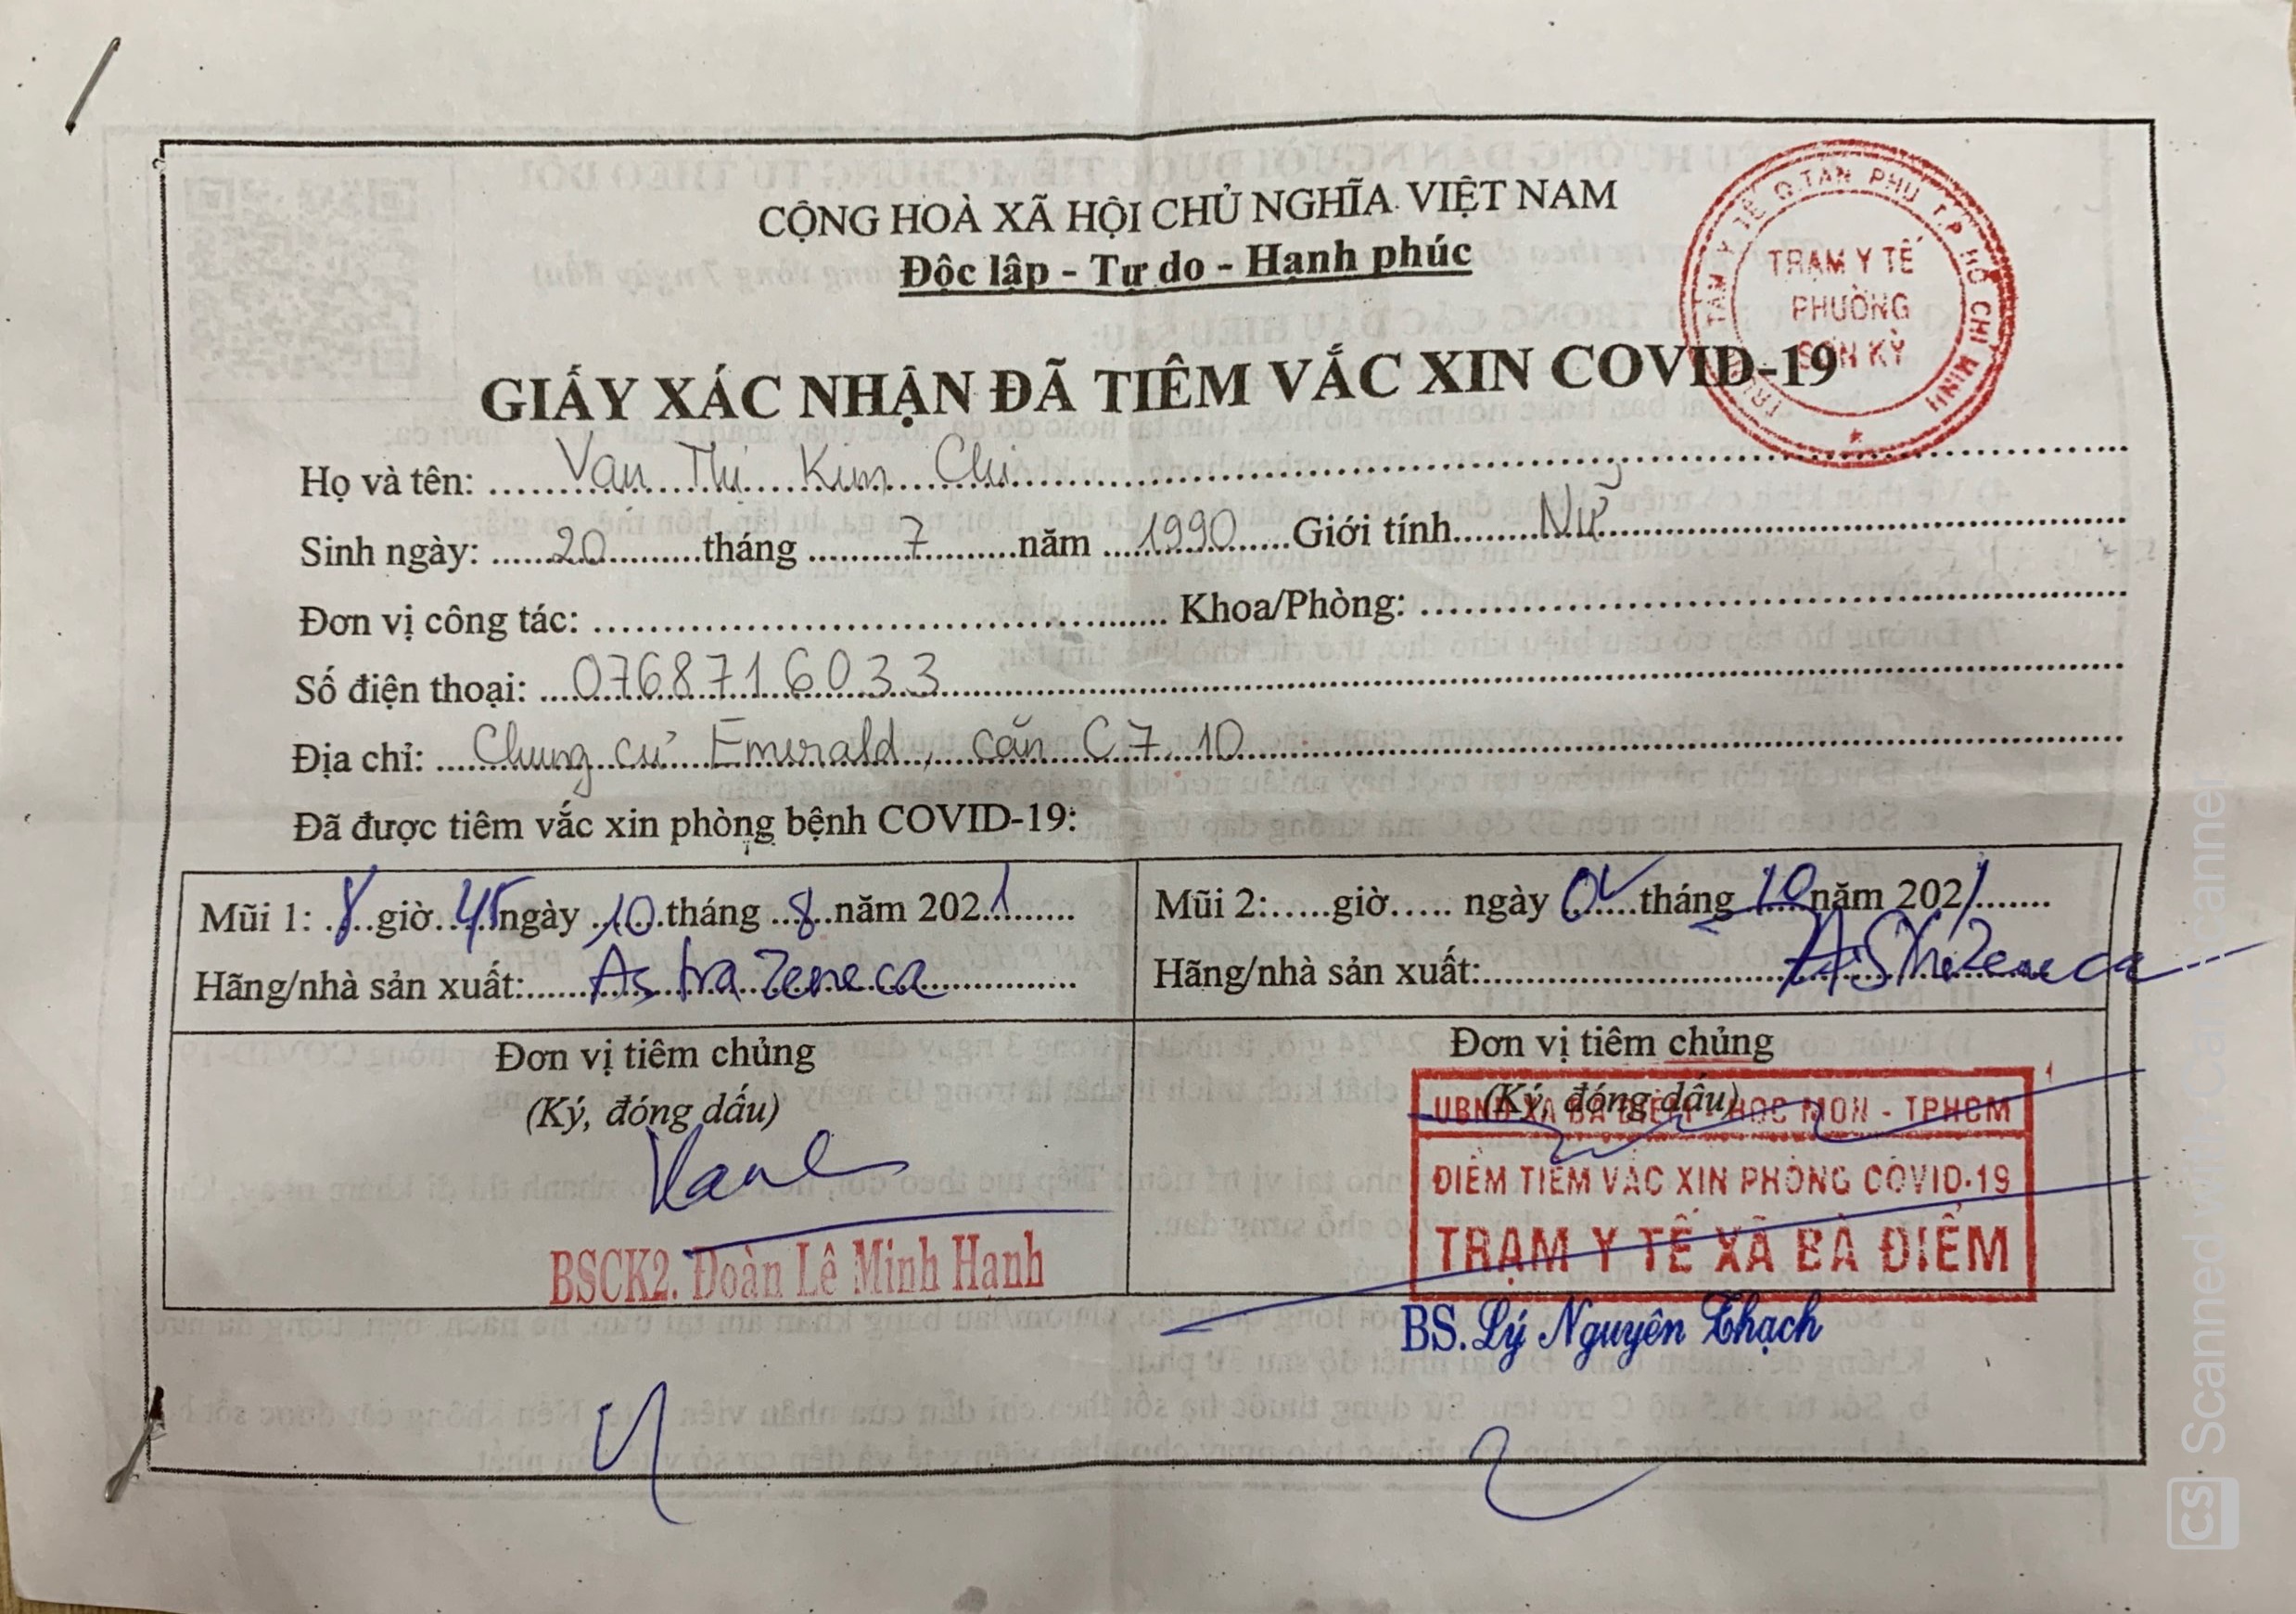 CỘNG HOÀ XÃ HỘI CHỦ NGHĨA VIỆT NAM
Độc lập - Tự do - Hạnh phúc
TRUNG TÂM Y TẾ Q.TÂN PHÚ T.P HỒ CHÍ MINH
TRẠM Y TẾ
PHƯỜNG
SƠN KỲ
GIẤY XÁC NHẬN ĐÃ TIÊM VẮC XIN COVID-19
Họ và tên: Văn Thị Kim Chi
Sinh ngày: 20 tháng 7 năm 1990 Giới tính Nữ
Đơn vị công tác: Khoa/Phòng:
Số điện thoại: 0768716033
Địa chỉ: Chung cư Emerald, căn C7.10
Đã được tiêm vắc xin phòng bệnh COVID-19:
Mũi 1: 8 giờ 45 ngày 10 tháng 8 năm 2021
Hãng/nhà sản xuất: AstraZeneca
Mũi 2: giờ ngày tháng 10 năm 2021
Hãng/nhà sản xuất: AstraZeneca
Đơn vị tiêm chủng
(Ký, đóng dấu)
BSCK2. Đoàn Lê Minh Hạnh
Đơn vị tiêm chủng
(Ký, đóng dấu)
UBND XÃ BÀ ĐIỂM - HÓC MÔN - TPHCM
ĐIỂM TIÊM VẮC XIN PHÒNG COVID-19
TRẠM Y TẾ XÃ BÀ ĐIỂM
BS. Lý Nguyên Thạch
CS Scanned with CamScanner